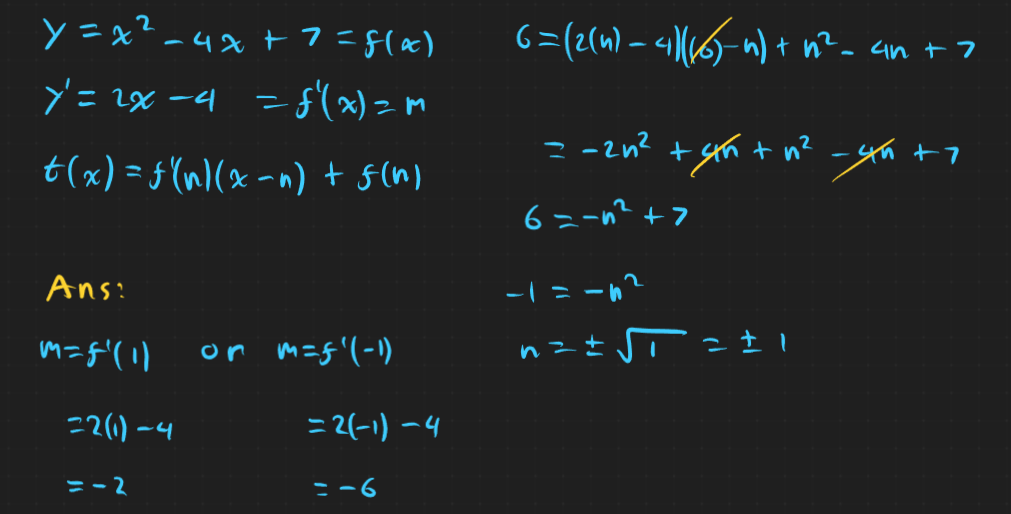 y = x² - 4x + 7 = f(x)
y' = 2x - 4 = f'(x) = m
t(x) = f'(n)(x - n) + f(n)
Ans:
m = f'(1) or m = f'(-1)
= 2(1) - 4 = 2(-1) - 4
= -2 = -6
6 = (2(n) - 4)((0) - n) + n² - 4n + 7
= -2n² + 4n + n² - 4n + 7
6 = -n² + 7
-1 = -n²
n = ± √1 = ± 1